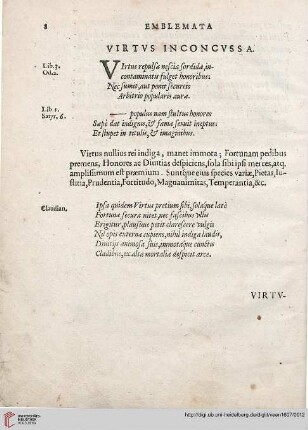 8 EMBLEMATA
VIRTVS INCONCVSSA.
Lib. 3.
Od. 2.
VIrtus repulsæ nescia sordidæ, in-
contaminatis fulget honoribus:
Nec sumit, aut ponit secures
Arbitrio popularis auræ.
Lib. 1.
Satyr. 6.
populus nam stultus honores
Sæpè dat indignis, & famæ seruit ineptus:
Et stupet in titulis, & imaginibus.
Virtus nullius rei indiga, manet immota; Fortunam pedibus
premens, Honores ac Diuitias despiciens, sola sibi ipsi merces, atq.
amplissimum est præmium. Suntque eius species variæ, Pietas, Iu-
stitia, Prudentia, Fortitudo, Magnanimitas, Temperantia, &c.
Claudian.
Ipsa quidem Virtus pretium sibi, solaque latè
Fortunæ secura nitet, nec fascibus vllis
Erigitur, plausúue petit clarescere vulgi:
Nil opis externæ cupiens, nihil indiga laudis,
Diuitiis animosa suis, immotaque cunctis
Casibus, ex alta mortalia despicit arce.
VIRTV-
http://digi.ub.uni-heidelberg.de/diglit/vaen1607/0012